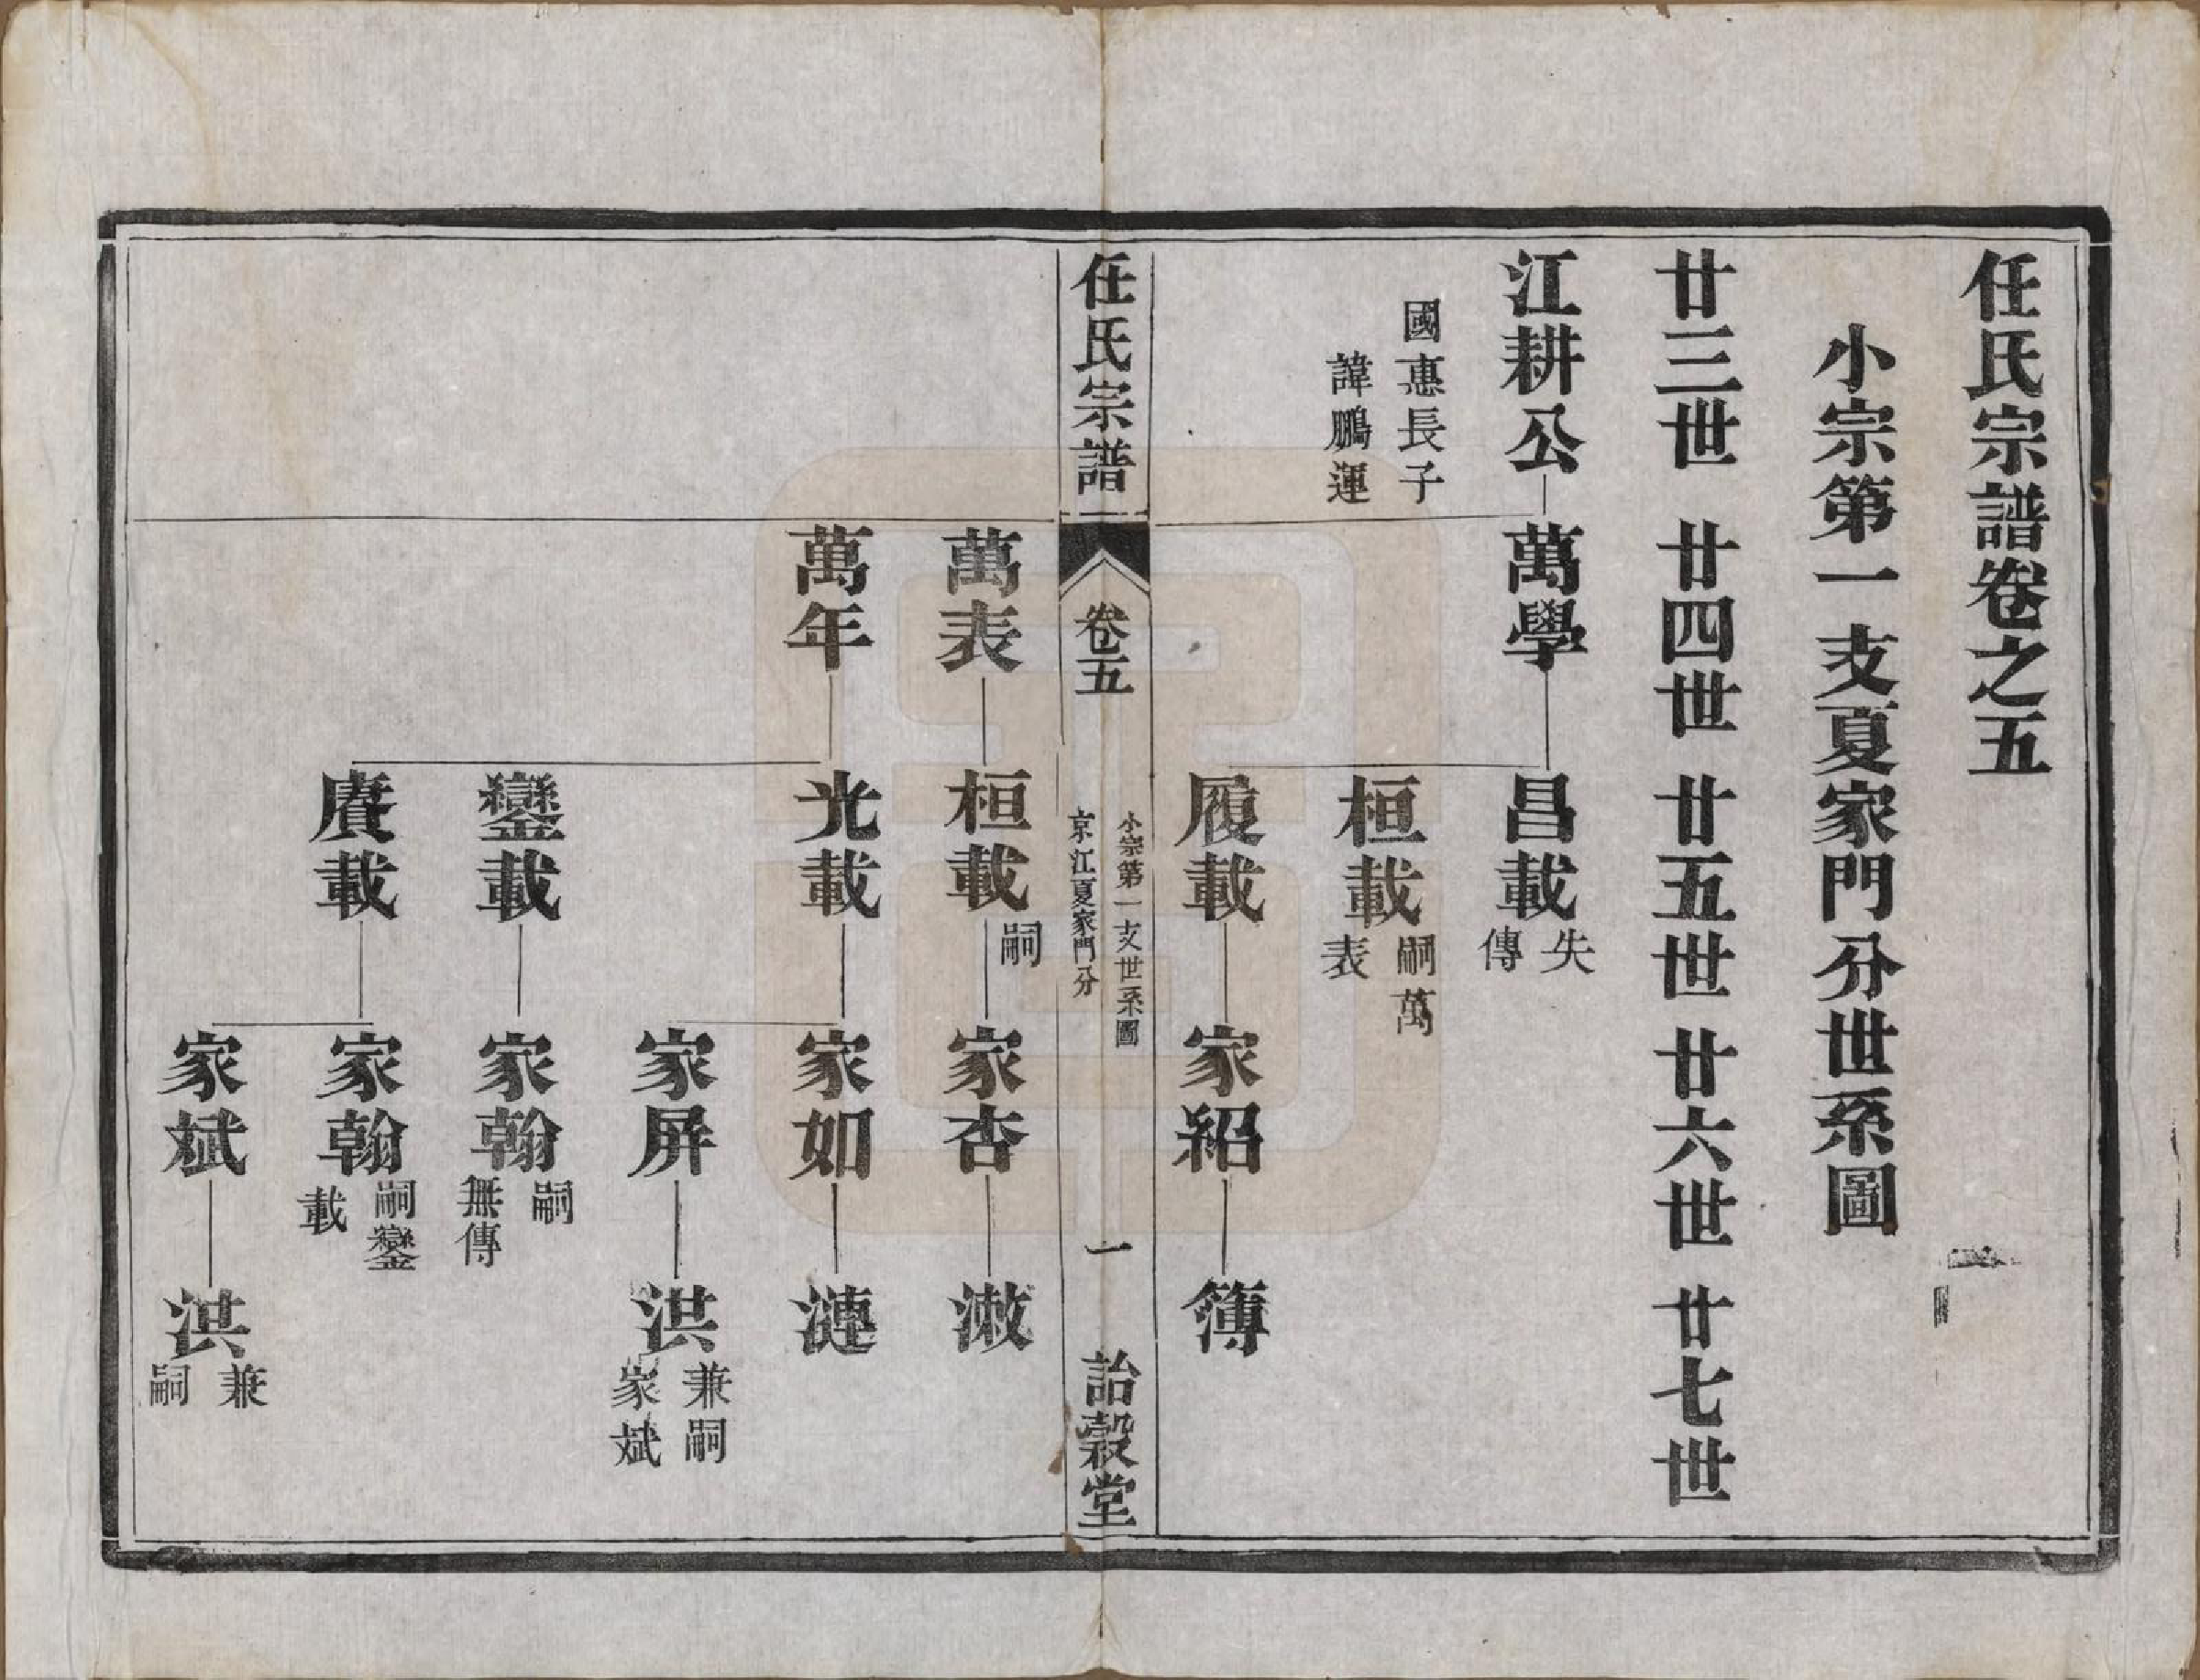 任氏宗譜卷之五
小宗第一支夏家門分世系圖
廿三世 廿四世 廿五世 廿六世 廿七世
江耕公 萬學 昌載 失傳
國惠長子
諱鵬運
桓載 嗣萬表
履載 家紹 簿
任氏宗譜 卷五 小宗第一支世系圖 京江夏家門分 一 詒穀堂
萬表 桓載 嗣 家杏 漵
萬年 光載 家如 漣
家屏 洪 兼嗣家斌
鑾載 家翰 嗣無傳
賡載 家翰 嗣鑾載
家斌 洪 兼嗣